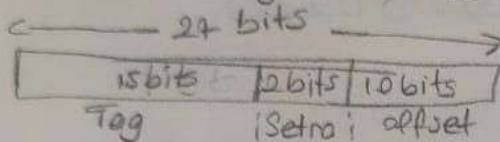 27 bits
15bits 2bits 10bits
Tag Setno offset